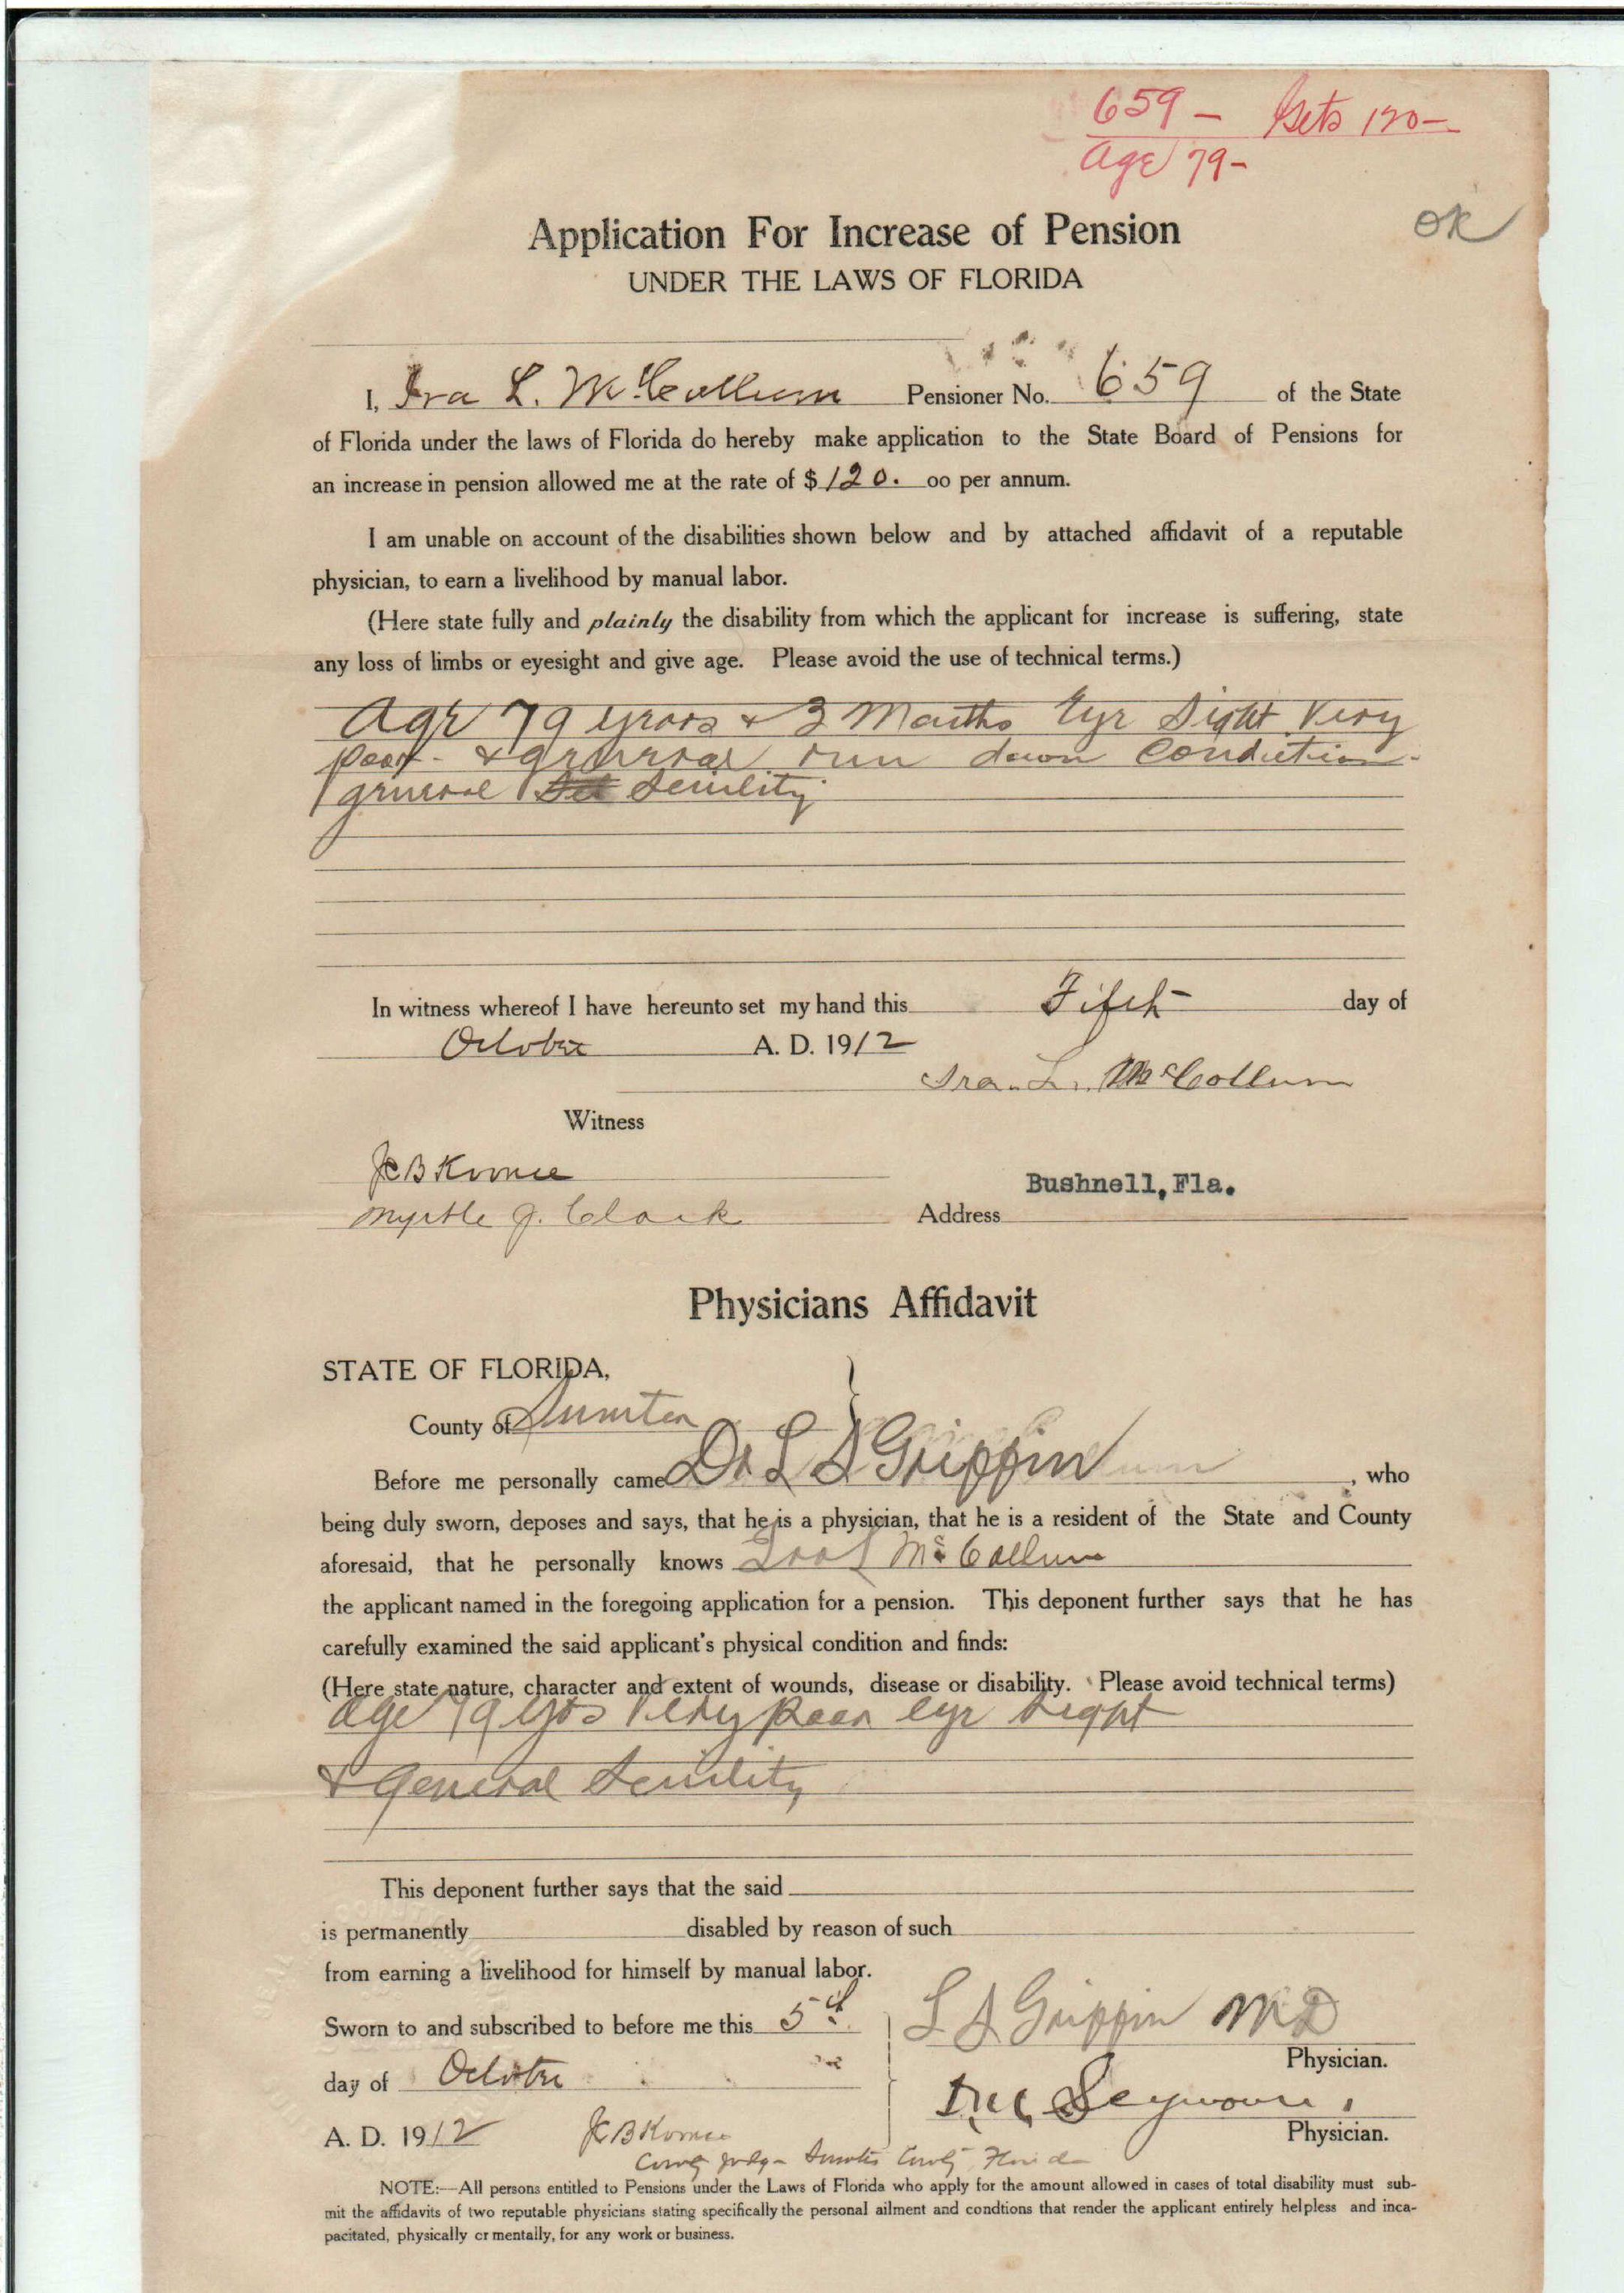 659 - Gets 120-
age 79-
OK
Application For Increase of Pension
UNDER THE LAWS OF FLORIDA
I, Ira L. McCollum Pensioner No. 659 of the State
of Florida under the laws of Florida do hereby make application to the State Board of Pensions for
an increase in pension allowed me at the rate of $ 120. oo per annum.
I am unable on account of the disabilities shown below and by attached affidavit of a reputable
physician, to earn a livelihood by manual labor.
(Here state fully and plainly the disability from which the applicant for increase is suffering, state
any loss of limbs or eyesight and give age. Please avoid the use of technical terms.)
Age 79 years & 3 Months Eye Sight Very
poor - & general run down Condition -
general Senility
In witness whereof I have hereunto set my hand this Fifth day of
October A. D. 1912
Ira. L. McCollum
Witness
JCB Koonce
Bushnell, Fla.
Myrtle J. Clark Address
Physicians Affidavit
STATE OF FLORIDA,
County of Sumter
Before me personally came Dr L S Griffin , who
being duly sworn, deposes and says, that he is a physician, that he is a resident of the State and County
aforesaid, that he personally knows Ira L McCollum
the applicant named in the foregoing application for a pension. This deponent further says that he has
carefully examined the said applicant's physical condition and finds:
(Here state nature, character and extent of wounds, disease or disability. Please avoid technical terms)
age 79 yrs Very poor eye sight
& general Senility
This deponent further says that the said
is permanently disabled by reason of such
from earning a livelihood for himself by manual labor.
Sworn to and subscribed to before me this 5th
L S Griffin MD
Physician.
day of October
Seymour
A. D. 1912 JCB Koonce
Physician.
County Judge Sumter County Florida
NOTE:—All persons entitled to Pensions under the Laws of Florida who apply for the amount allowed in cases of total disability must sub-
mit the affidavits of two reputable physicians stating specifically the personal ailment and condtions that render the applicant entirely helpless and inca-
pacitated, physically or mentally, for any work or business.